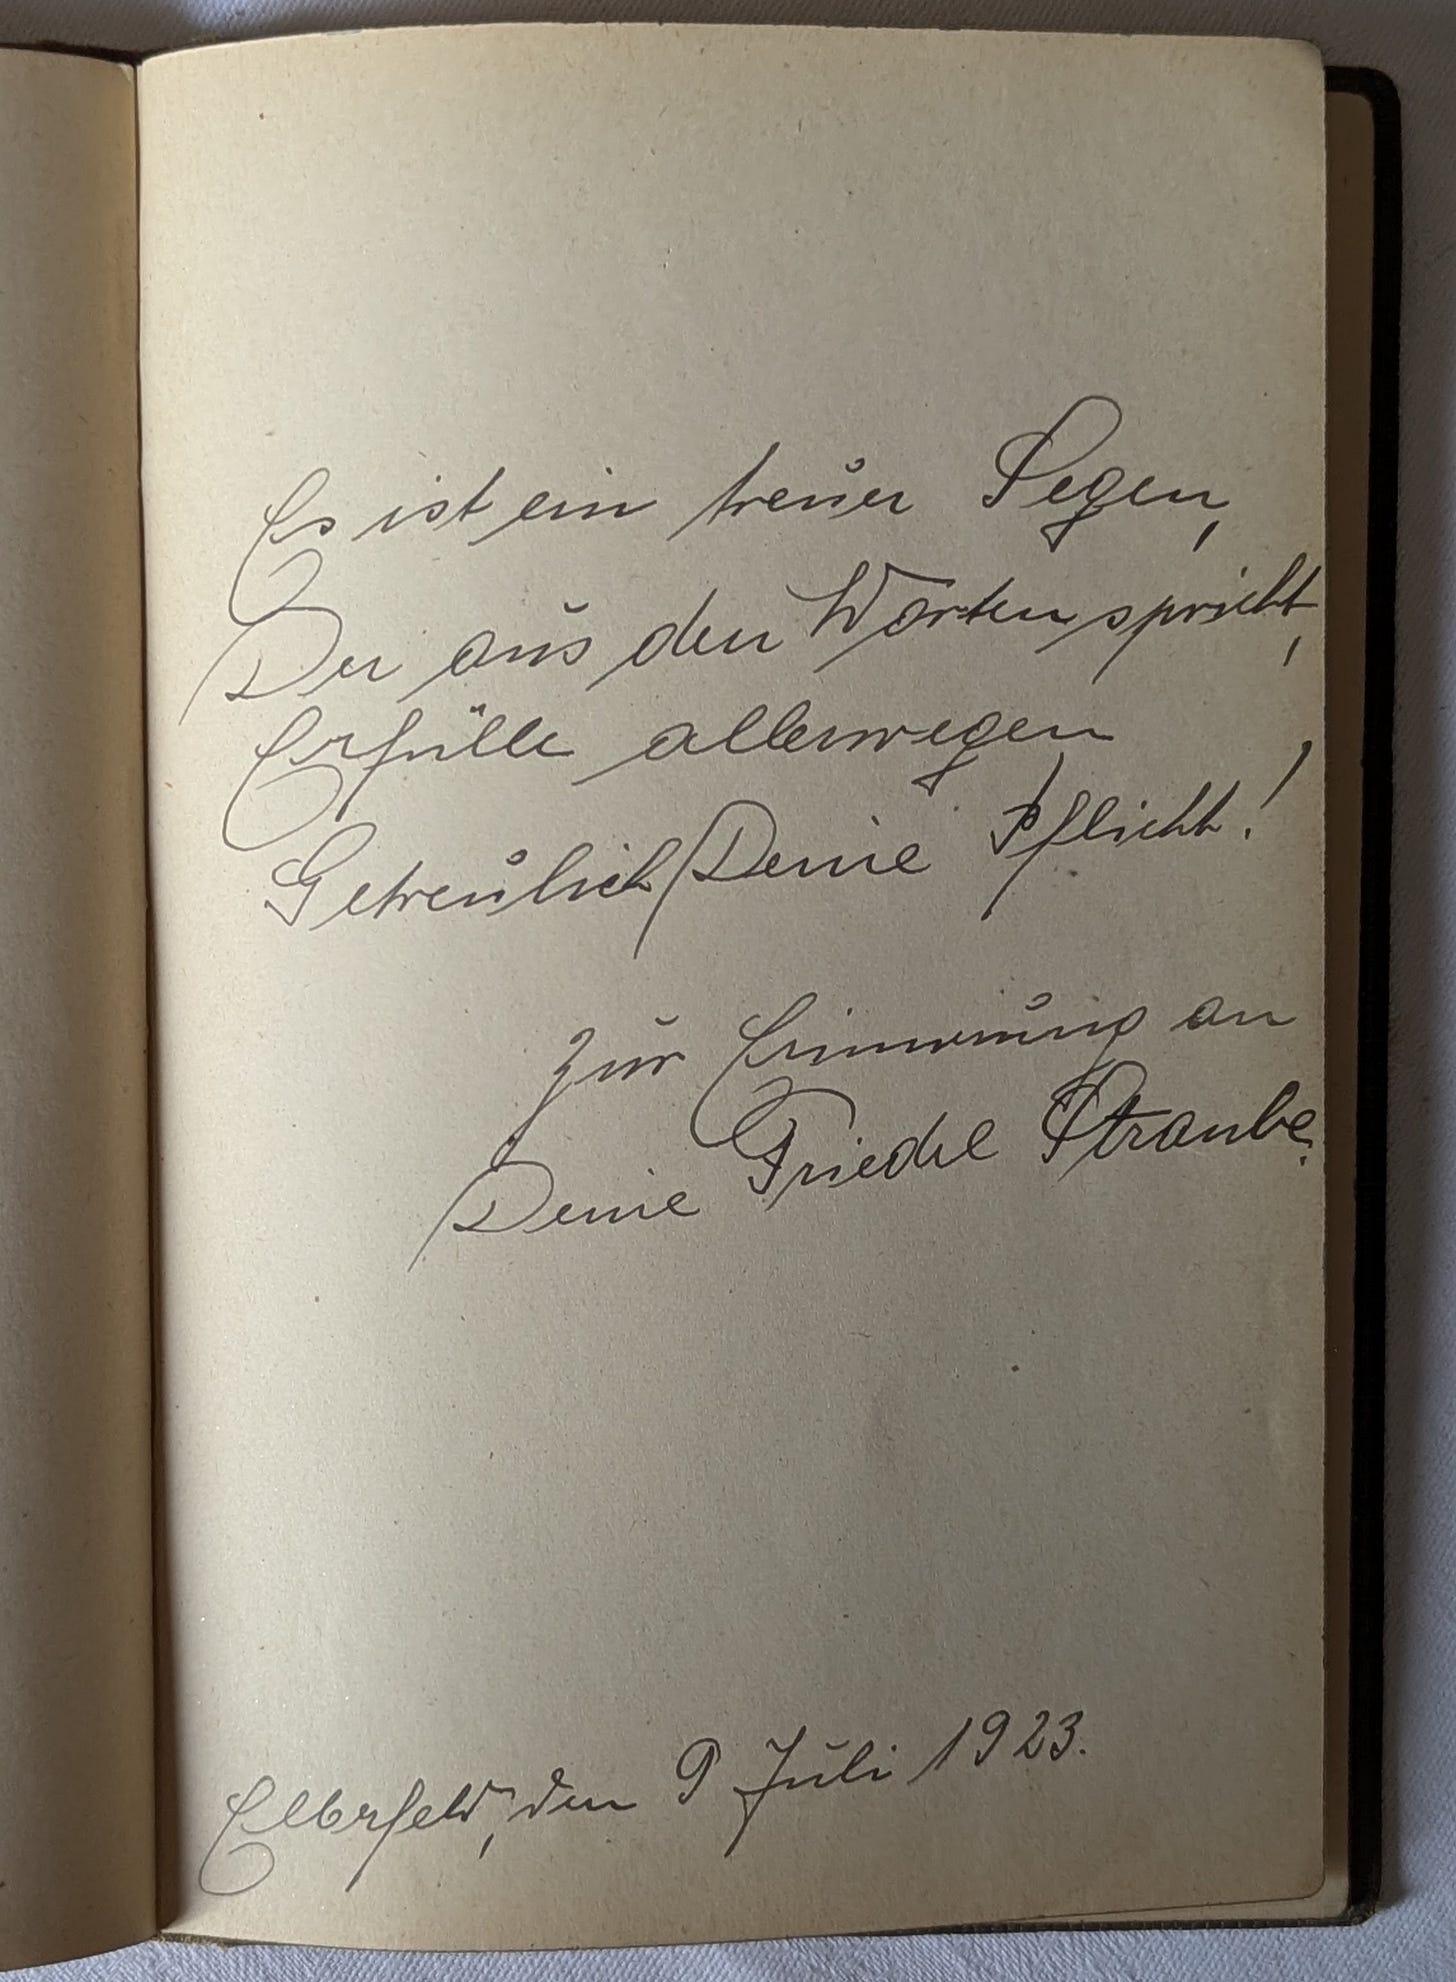 Es ist ein treuer Segen,
Der aus den Worten spricht,
Erfülle allerwegen
Getreulich Deine Pflicht!
Zur Erinnerung an
Deine Friedel Straube.
Elberfeld, den 9 Juli 1923.